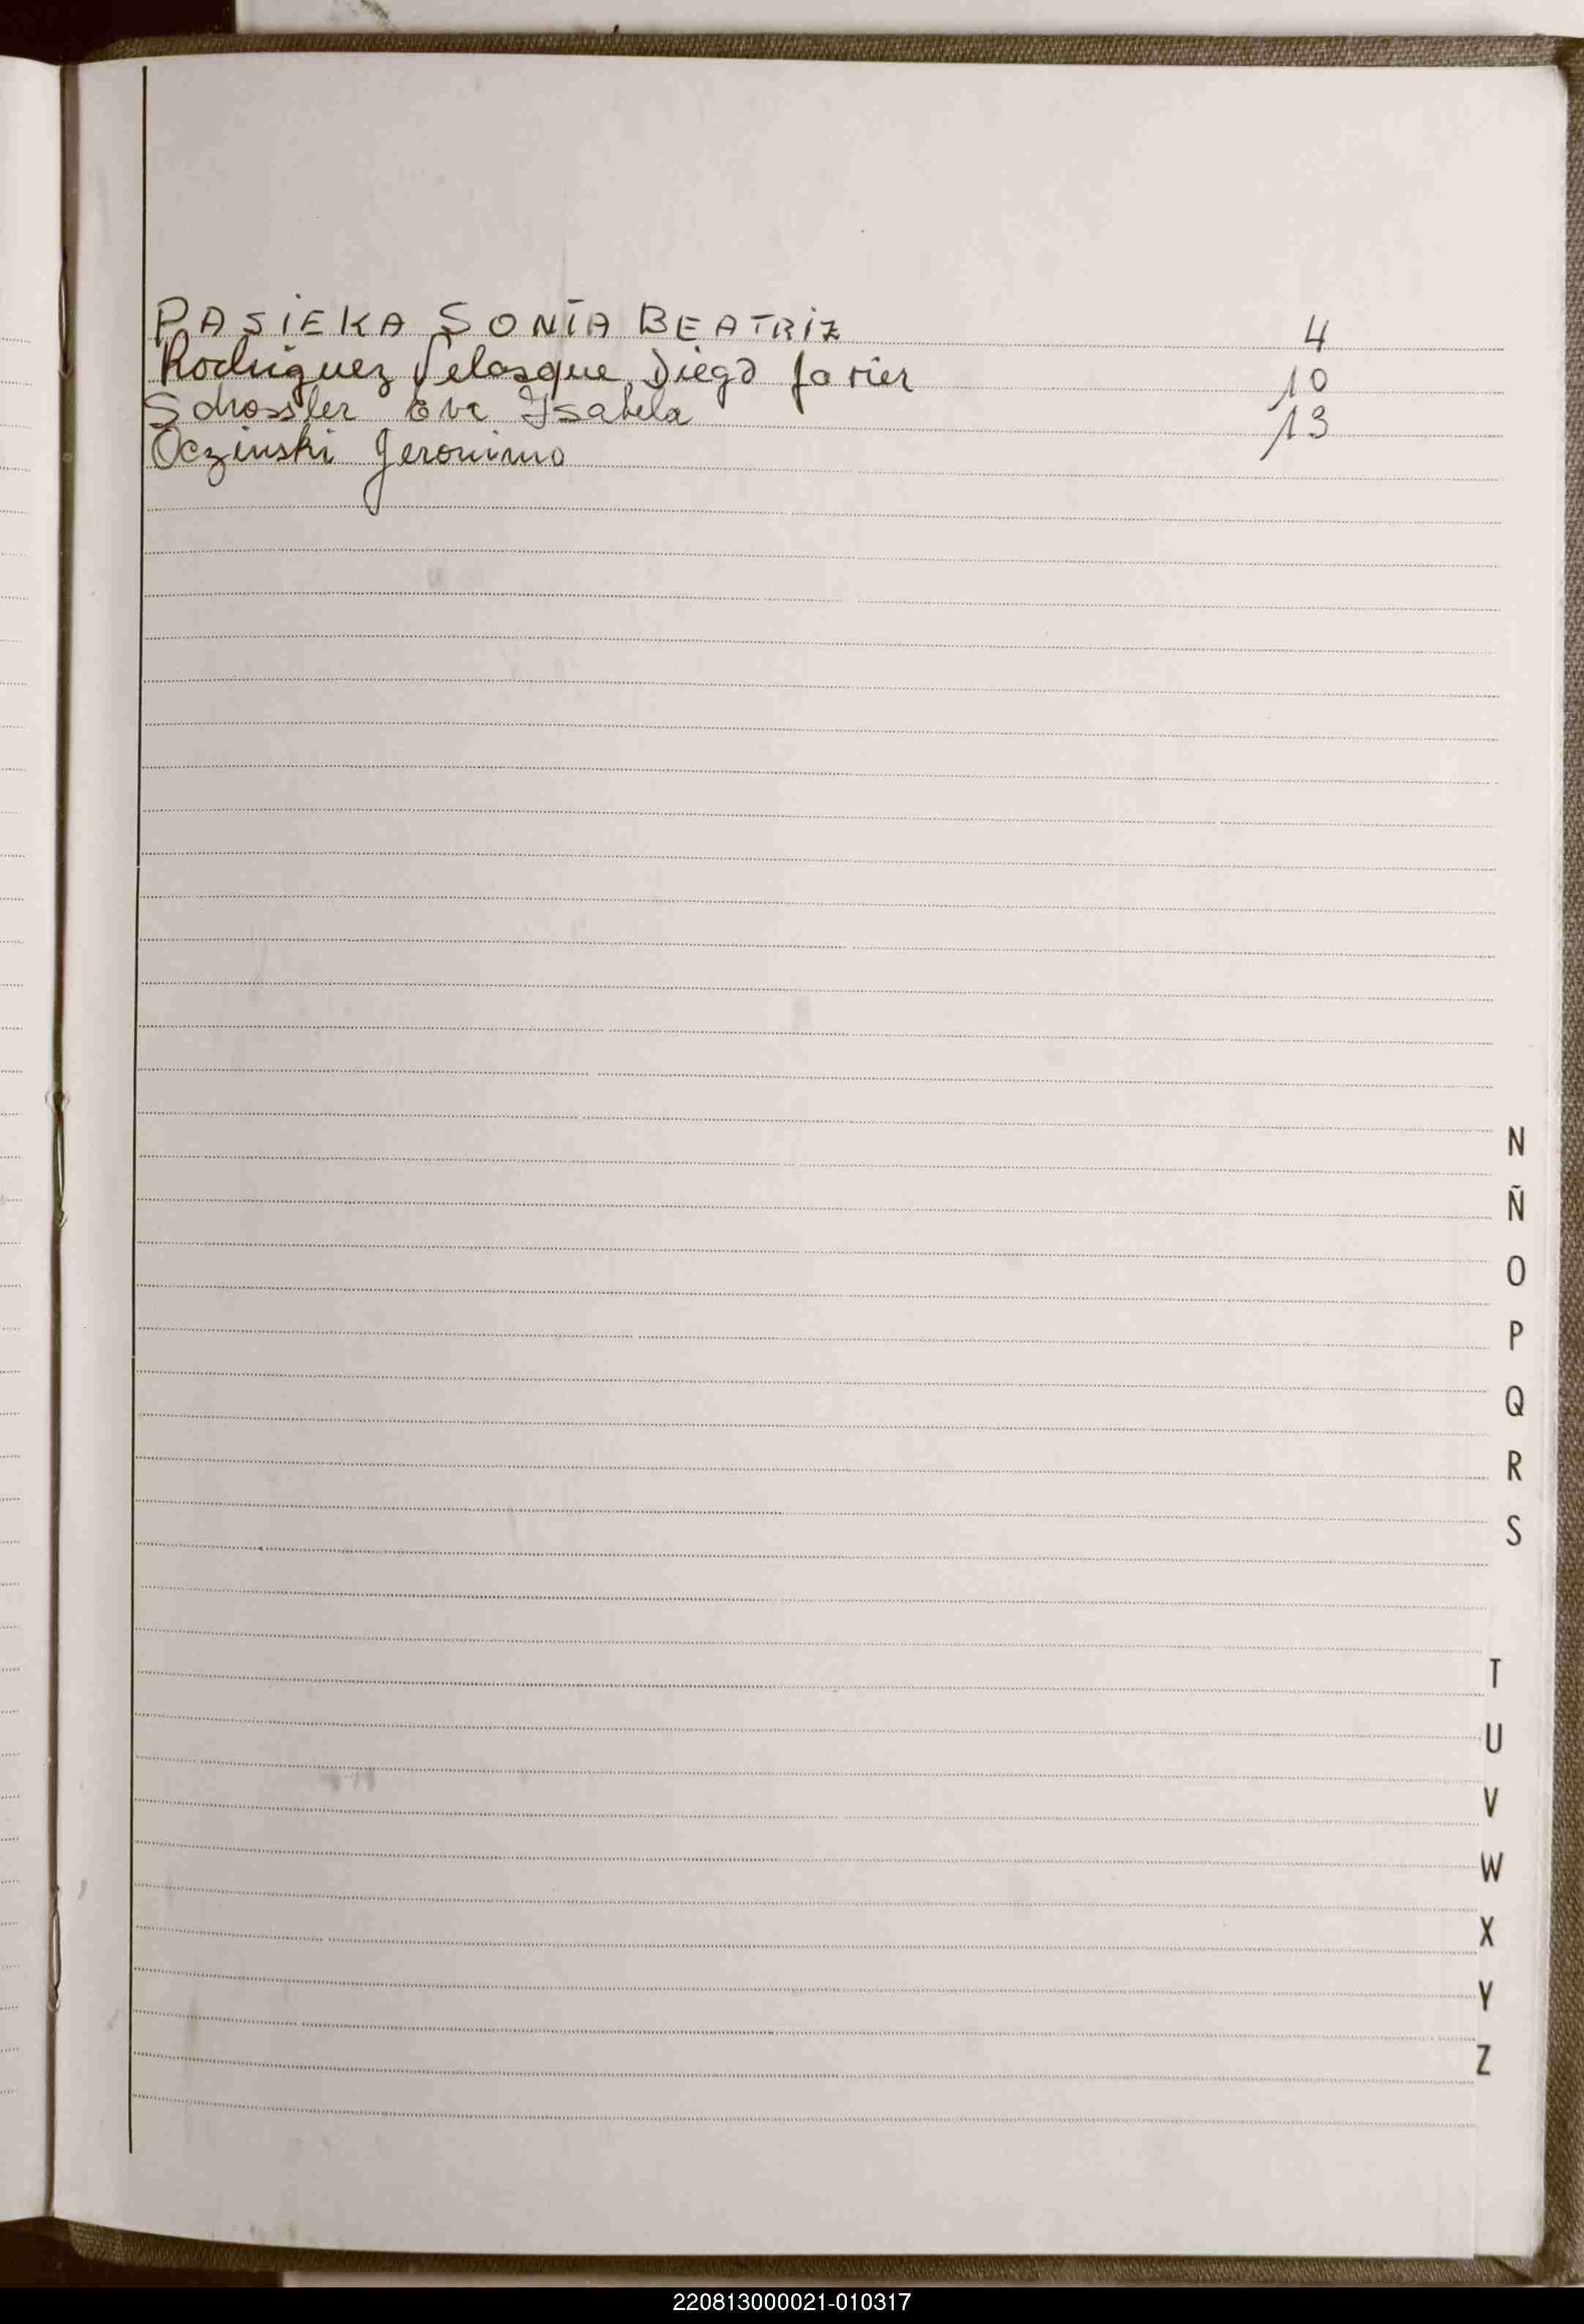 PASIEKA SONIA BEATRIZ 4
Rodriguez Velasque, Diego Javier 10
Schossler Eva Isabela 13
Oczinski Jeronimo
N
Ñ
O
P
Q
R
S
T
U
V
W
X
Y
Z
220813000021-010317